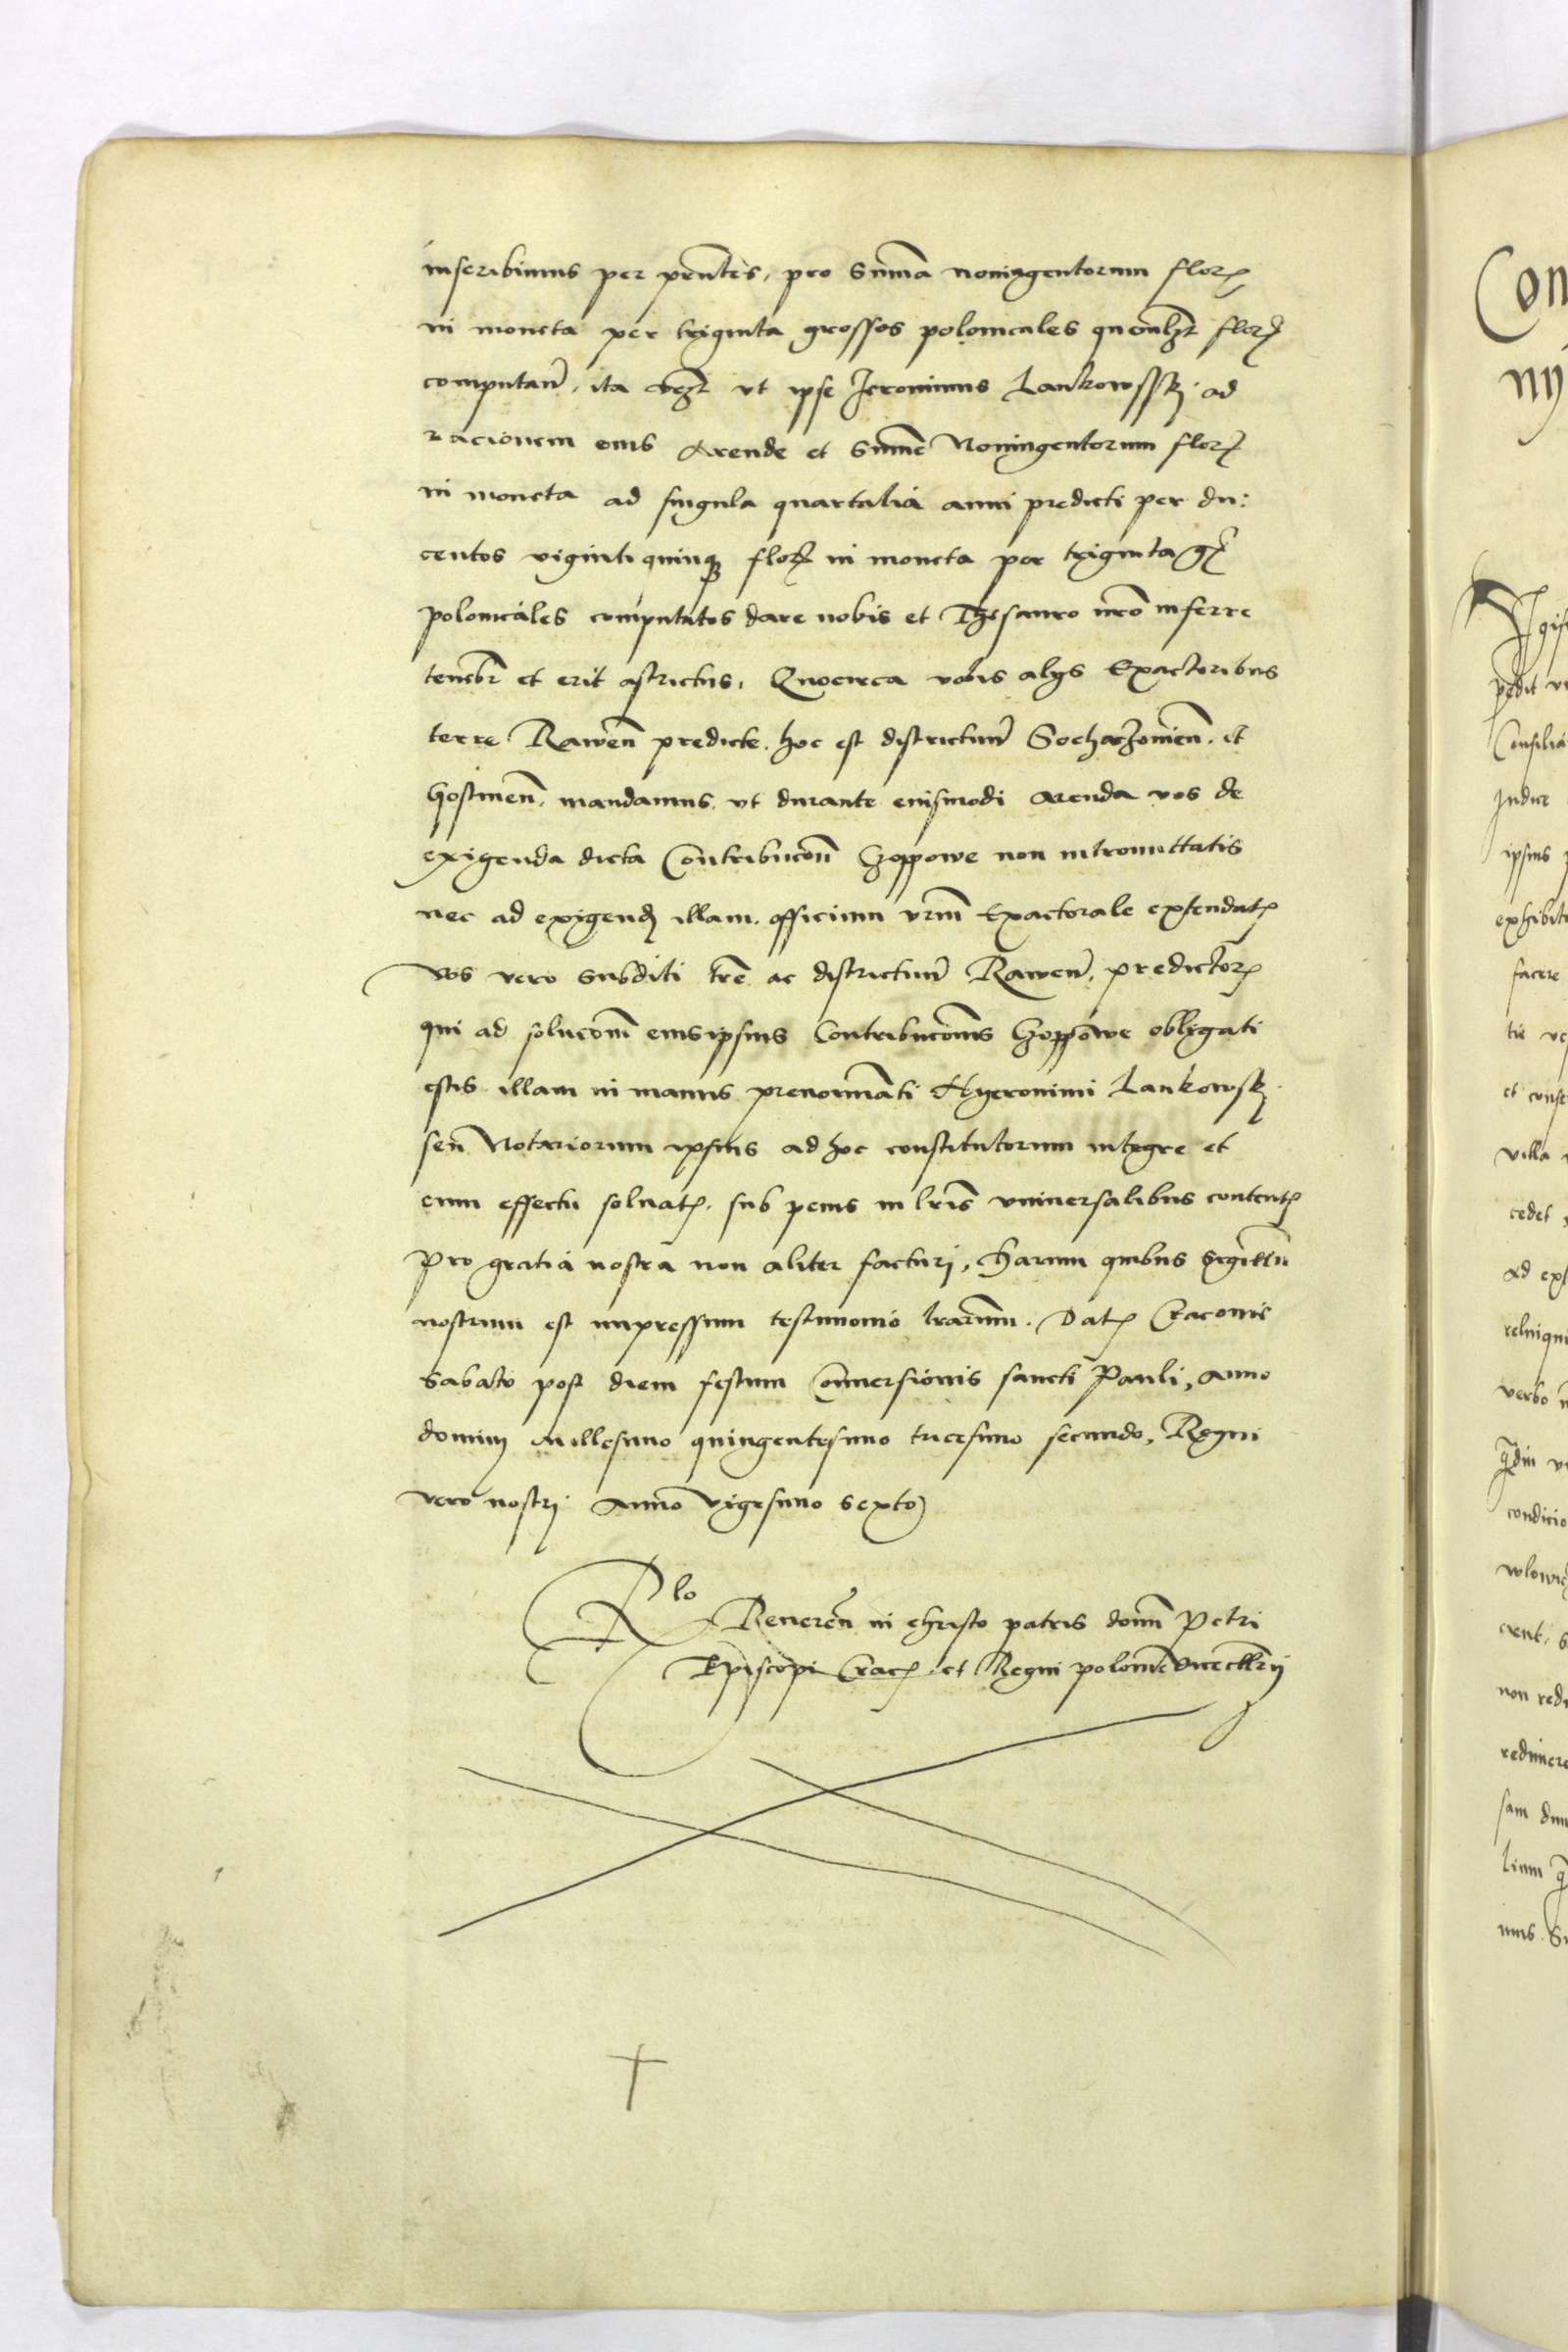 inscribimus per pñtes, pro Sum̃a noningentorum flor̃
in moneta per triginta grossos polonicales quemlʒt flor̃
computañ, ita vʒt vt ipse Jeronimus Lankowssky ad
racionem eius Arende et Sum̃e Noningentorum flor̃
in moneta ad singula quartalia anni predicti per du:
centos viginti quinqʒ flor̃ in moneta per triginta gr̃
polonicales computatos dare nobis et Thesauro nr̃o inferre
teneb̃r et erit astrictus, Quocirca vobis alys Exactoribus
terre Rawen̄ predicte. hoc est districtuum̃ Sochaczouien̄. et
Gostinen̄. mandamus, vt durante eiusmodi Arenda vos de
exigenda dicta Contribucōn̄ Czoppowe non intromittatis
nec ad exigend̃ illam. officium vr̃m Exactorale extendat̃
vos vero Subditi tr̃e ac districtuum̃ Rawen̄. predictor̃
qui ad solucōm̄ eius ipsius Contribucōnis Czoppowe obligati
estis illam in manus prenominati Hyeronimi Lankowsky
seu Notariorum ipsius ad hoc constitutorum integre et
cum effectu soluat̃. sub penis in lr̃is vniuersalibus content̃
pro gratia nostra non aliter facturi, Harum quibus Sigillũ
nostrum est impressum testimonio lrarum̄. Dat̃ Cracouie
Sabato post diem festum Conuersionis sancti Pauli, Anno
dominj Millesimo quingentesimo tricesimo secundo, Regni
vero nostrj Anno Vigesimo Sexto
Rlo Reueren̄ in christo patris domĩ Petri
Ep̄iscopi Crac̃. et Regni polonie vicecllrij
Con
ny